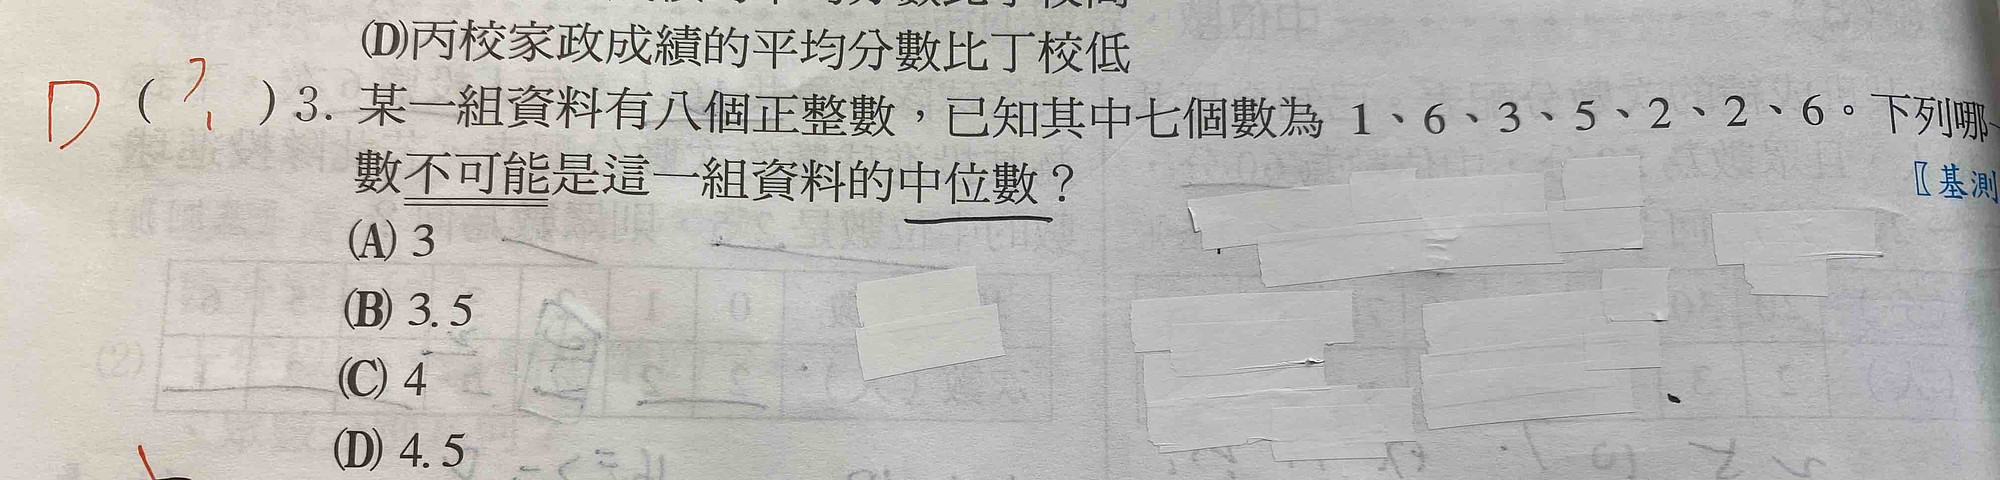 (D)丙校家政成績的平均分數比丁校低
D ( ? ) 3. 某一組資料有八個正整數，已知其中七個數為 1、6、3、5、2、2、6。下列哪一
數不可能是這一組資料的中位數？
〖基測
(A) 3
(B) 3.5
(C) 4
(D) 4.5